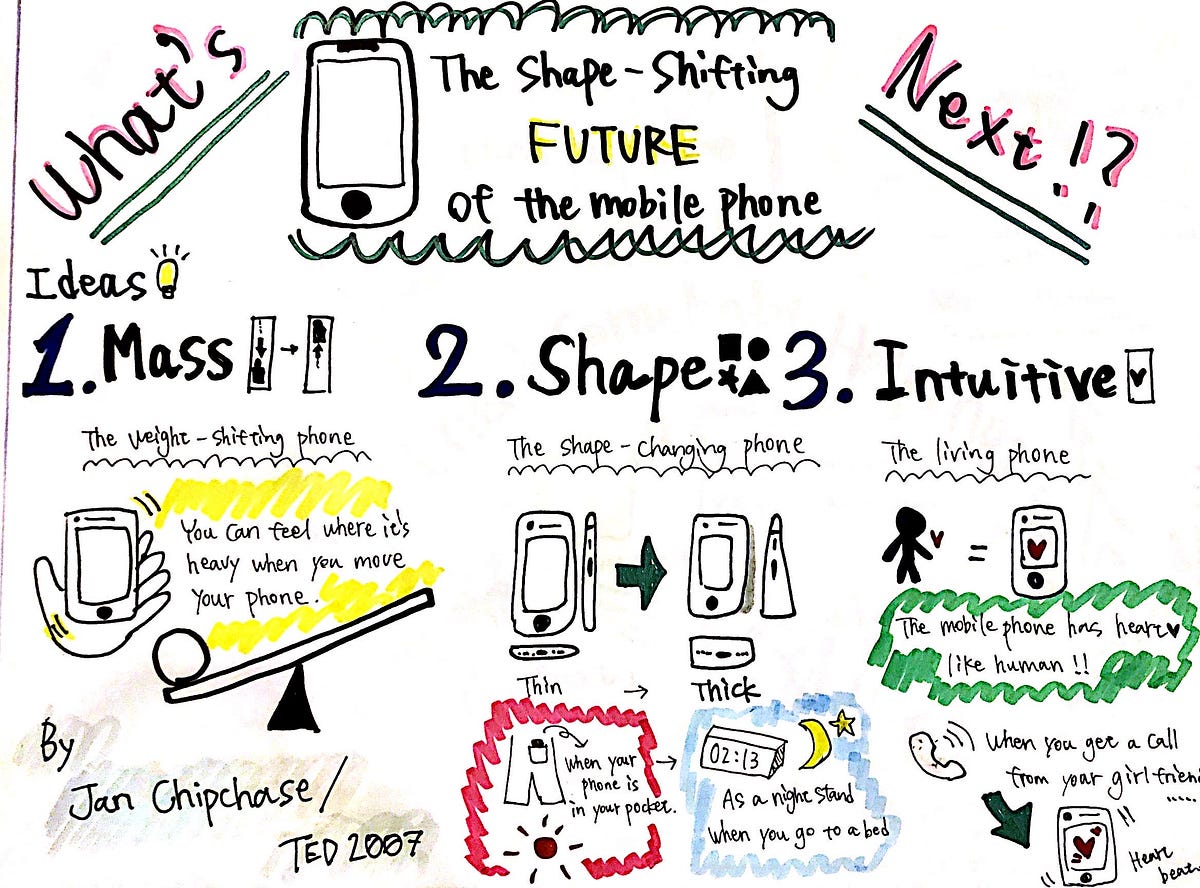 What's
The Shape-Shifting
FUTURE
of the mobile phone
Next!?
Ideas
1. Mass
2. Shape
3. Intuitive
The weight-shifting phone
You can feel where it's
heavy when you move
your phone.
By
Jan Chipchase/
TED 2007
The shape-changing phone
Thin → Thick
When your
phone is
in your pocket.
02:13
As a night stand
when you go to a bed
The living phone
=
The mobile phone has heart♥
like human!!
When you get a call
from your girlfrien
.....
Heart
beat